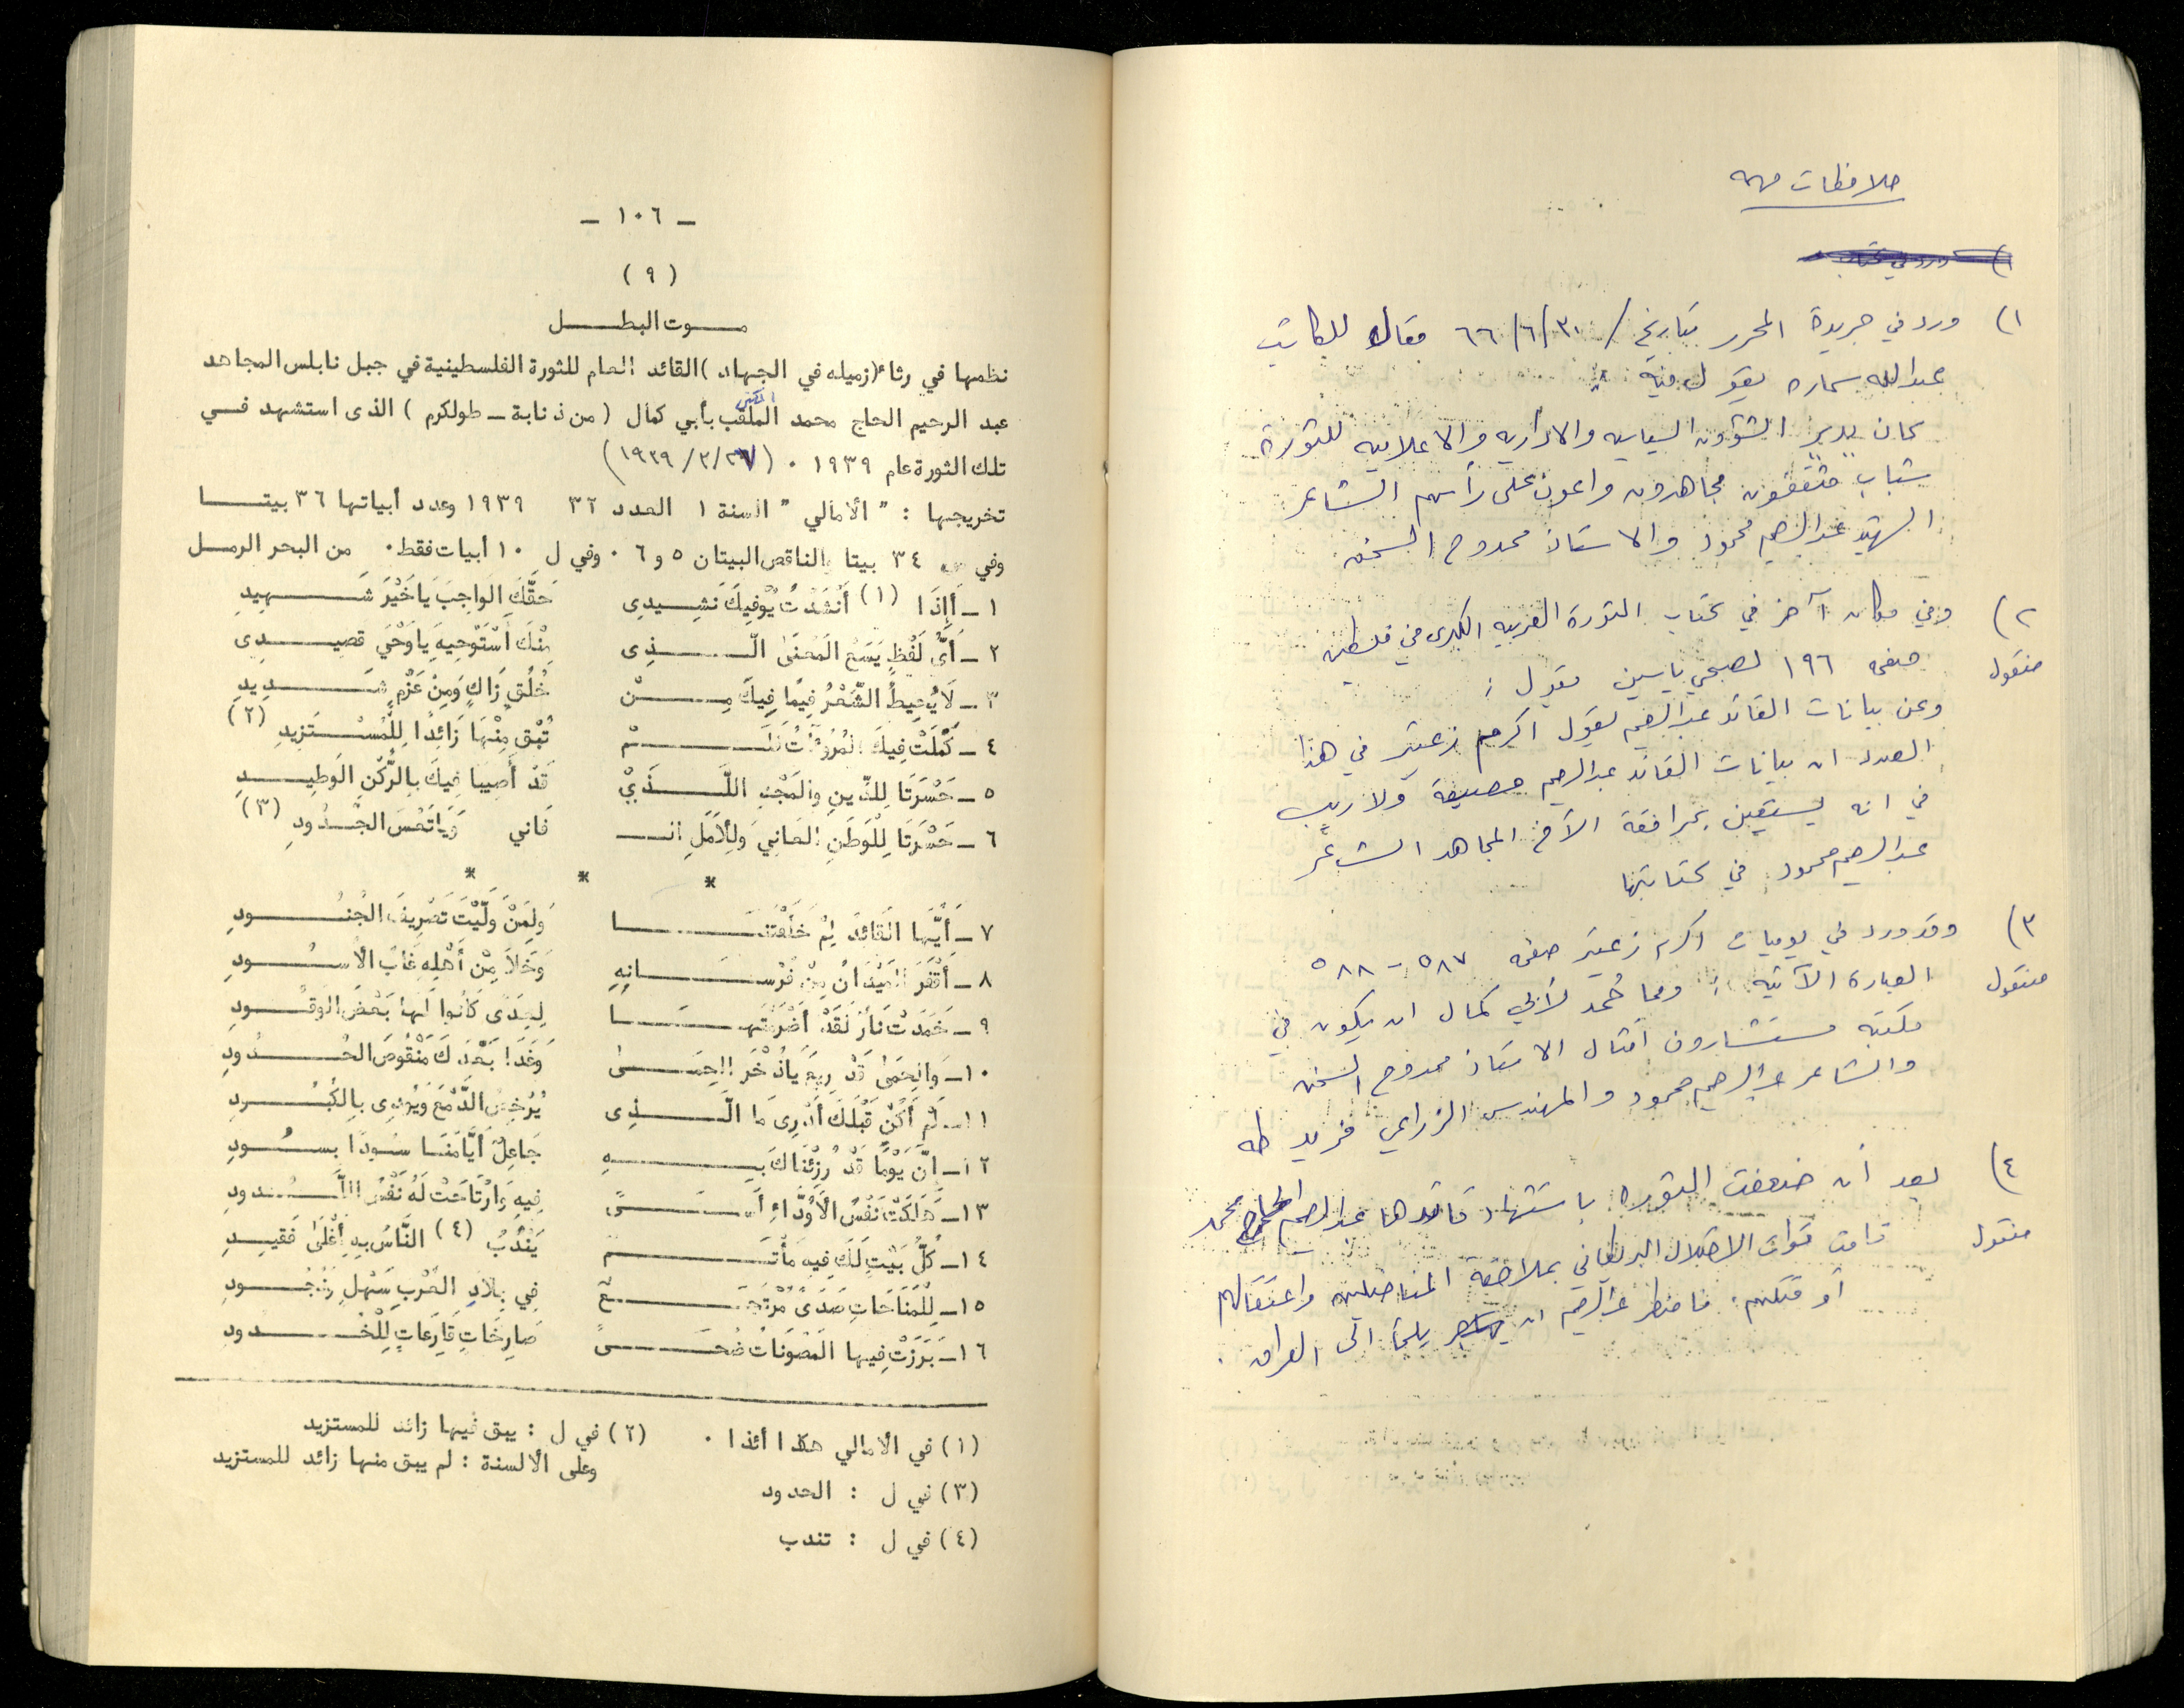 ملاحظات مهمه
١) ورد في جريدة المحرر بتاريخ / ٦٦/٦/٣٠ مقال للكاتب
عبدالله سماره يقول فيه :
كان يدير الشؤون السياسيه والاداريه والاعلاميه للثورة
شباب مثقفون مجاهدون واعون على رأسهم الشاعر
الشهيد عبدالرحيم محمود والاستاذ ممدوح السخن
٢) وفي مكان آخر في كتاب الثورة العربيه الكبرى في فلسطين
منقول صفحه ١٩٦ لصبحي ياسين يقول :
وعن بيانات القائد عبدالرحيم يقول اكرم زعيتر في هذا
الصدد ان بيانات القائد عبدالرحيم حصيفة ولا ريب
في انه يستعين بمرافقة الأخ المجاهد الشاعر
عبدالرحيم محمود في كتابتها
٣) وقد ورد في يوميات اكرم زعيتر صفحه ٥٨٧ - ٥٨٨
منقول العبارة الآتية : ومما حُمد لأبي كمال ان يكون في
مكتبه مستشارون أمثال الاستاذ ممدوح السخن
والشاعر عبدالرحيم محمود والمهندس الزراعي فريد طه
٤) بعد أن ضعفت الثوره باستشهاد قائدها عبدالرحيم الحاج محمد
منقول قامت قوات الاحتلال البريطاني بملاحقة المناضلين واعتقالهم
أو قتلهم . فاضطر عبدالرحيم ان يلجأ الى العراق .
ـ ١٠٦ ـ
( ٩ )
مـــوت البطـــل
نظمها في رثاء (زميله في الجهاد ) القائد العام للثورة الفلسطينية في جبل نابلس المجاهد
المكنى
عبد الرحيم الحاج محمد الملقب بأبي كمال ( من ذنابة ـ طولكرم ) الذى استشهد فـــي
تلك الثورة عام ١٩٣٩ ٠ ( ٢٧/ ٣/ ١٩٣٩)
تخريجها : " الأمالي " السنة ١ العدد ٣٢ ١٩٣٩ وعدد أبياتها ٣٦ بيتـــا
وفي س ٣٤ بيتا والناقص البيتان ٥ و ٦ ٠ وفي ل ١٠ أبيات فقط ٠ من البحر الرمـــل
١ ـ أَإِذَا (١) أَنْشَدْتُ يُوْفِيكَ نَشِـيدِى حَقَّكَ الوَاجِبَ يَا خَيْرَ شَـــهِيدِ
٢ ـ أَىُّ لَفْظٍ يَسَعُ المَعْنَى الَّـــذِى مِنْكَ أَسْتَوْحِيهِ يا وَحْيَ قَصِيـــدِى
٣ ـ لَا يُحِيطُ الشِّعْرُ فِيمَا فِيكَ مِـــنْ خُلُقٍ زَاكٍ وَمِنْ عَزْمٍ شَـــدِيدِ
٤ ـ كَمُلَتْ فِيكَ المُرُوءَاتُ فَلَـــمْ تُبْقِ مِنْهَا زَائِدًا لِلْمُسْـــتَزِيدِ (٢)
٥ ـ حَسْرَتَا لِلدِّينِ وَالمَجْدِ اللَّـــذَيْنِ قَدْ أُصِيبا فِيكَ بِالرُّكْنِ الوَطِيـــدِ
٦ ـ حَسْرَتَا لِلْوَطَنِ العَانِي وَلِلأَمَلِ الـــ فَانِي وَيَا تَعْسَ الجُـــدُودِ (٣)
* * *
٧ ـ أَيُّهَا القَائِدُ لِمْ خَلَّفْتَنَـــا وَلِمَنْ وَلَّيْتَ تَصْرِيفَ الجُنُـــودِ
٨ ـ أَقْفَرَ المَيْدَانُ مِنْ فُرْسَـــانِهِ وَخَلَا مِنْ أَهْلِهِ غَابُ الأُسُـــودِ
٩ ـ خَمَدَتْ نَارٌ لَقَدْ أَضْرَمْتَهـــا لِعِدًى كَانُوا لَهَا بَعْضَ الوَقُـــودِ
١٠ـ وَالحِمَى قَدْ رِيعَ يَا ذُخْرَ الحِمَـــى وَغَدَا بَعْدَكَ مَنْقُوصَ الحُـــدُودِ
١١ـ لَمْ أَكُنْ قَبْلَكَ أَدْرِى مَا الَّـــذِى يُرْخِصُ الدَّمْعَ وَيُودِى بِالكُبُـــودِ
١٢ـ إِنَّ يَوْمًا قَدْ رُزِئْنَاكَ بِـــهِ جَاعِلٌ أَيَّامَنَـــا سُودًا بسُـــودِ
١٣ـ هَلَكَتْ نَفْسُ الأَوِدَّاءِ أَسَـــىً فِيهِ وَارْتَاحَتْ لَهُ نَفْسُ اللَّـــدُودِ
١٤ـ كُلُّ بَيْتٍ لَكَ فِيهِ مَأْتَـــمٌ يَنْدُبُ (٤) النَّاسُ بِهِ أَغْلَى فَقِيـــدِ
١٥ـ لِلْمَنَاحَاتِ صَدًى مُرْتَجَـــعٌ فِي بِلادِ العُرْبِ سَهْلٍ وَنُجُـــودِ
١٦ـ بَرَزَتْ فِيها المَصُونَاتُ ضُحَـــىً صَارِخَاتٍ قَارِعَاتٍ لِلْخُـــدُودِ
(١) في الأمالي هكذا أئذا ٠ (٢) في ل : يبق فيها زائد للمستزيد
وعلى الألسنة : لم يبق منها زائد للمستزيد
(٣) في ل : الحدود
(٤) في ل : تندب